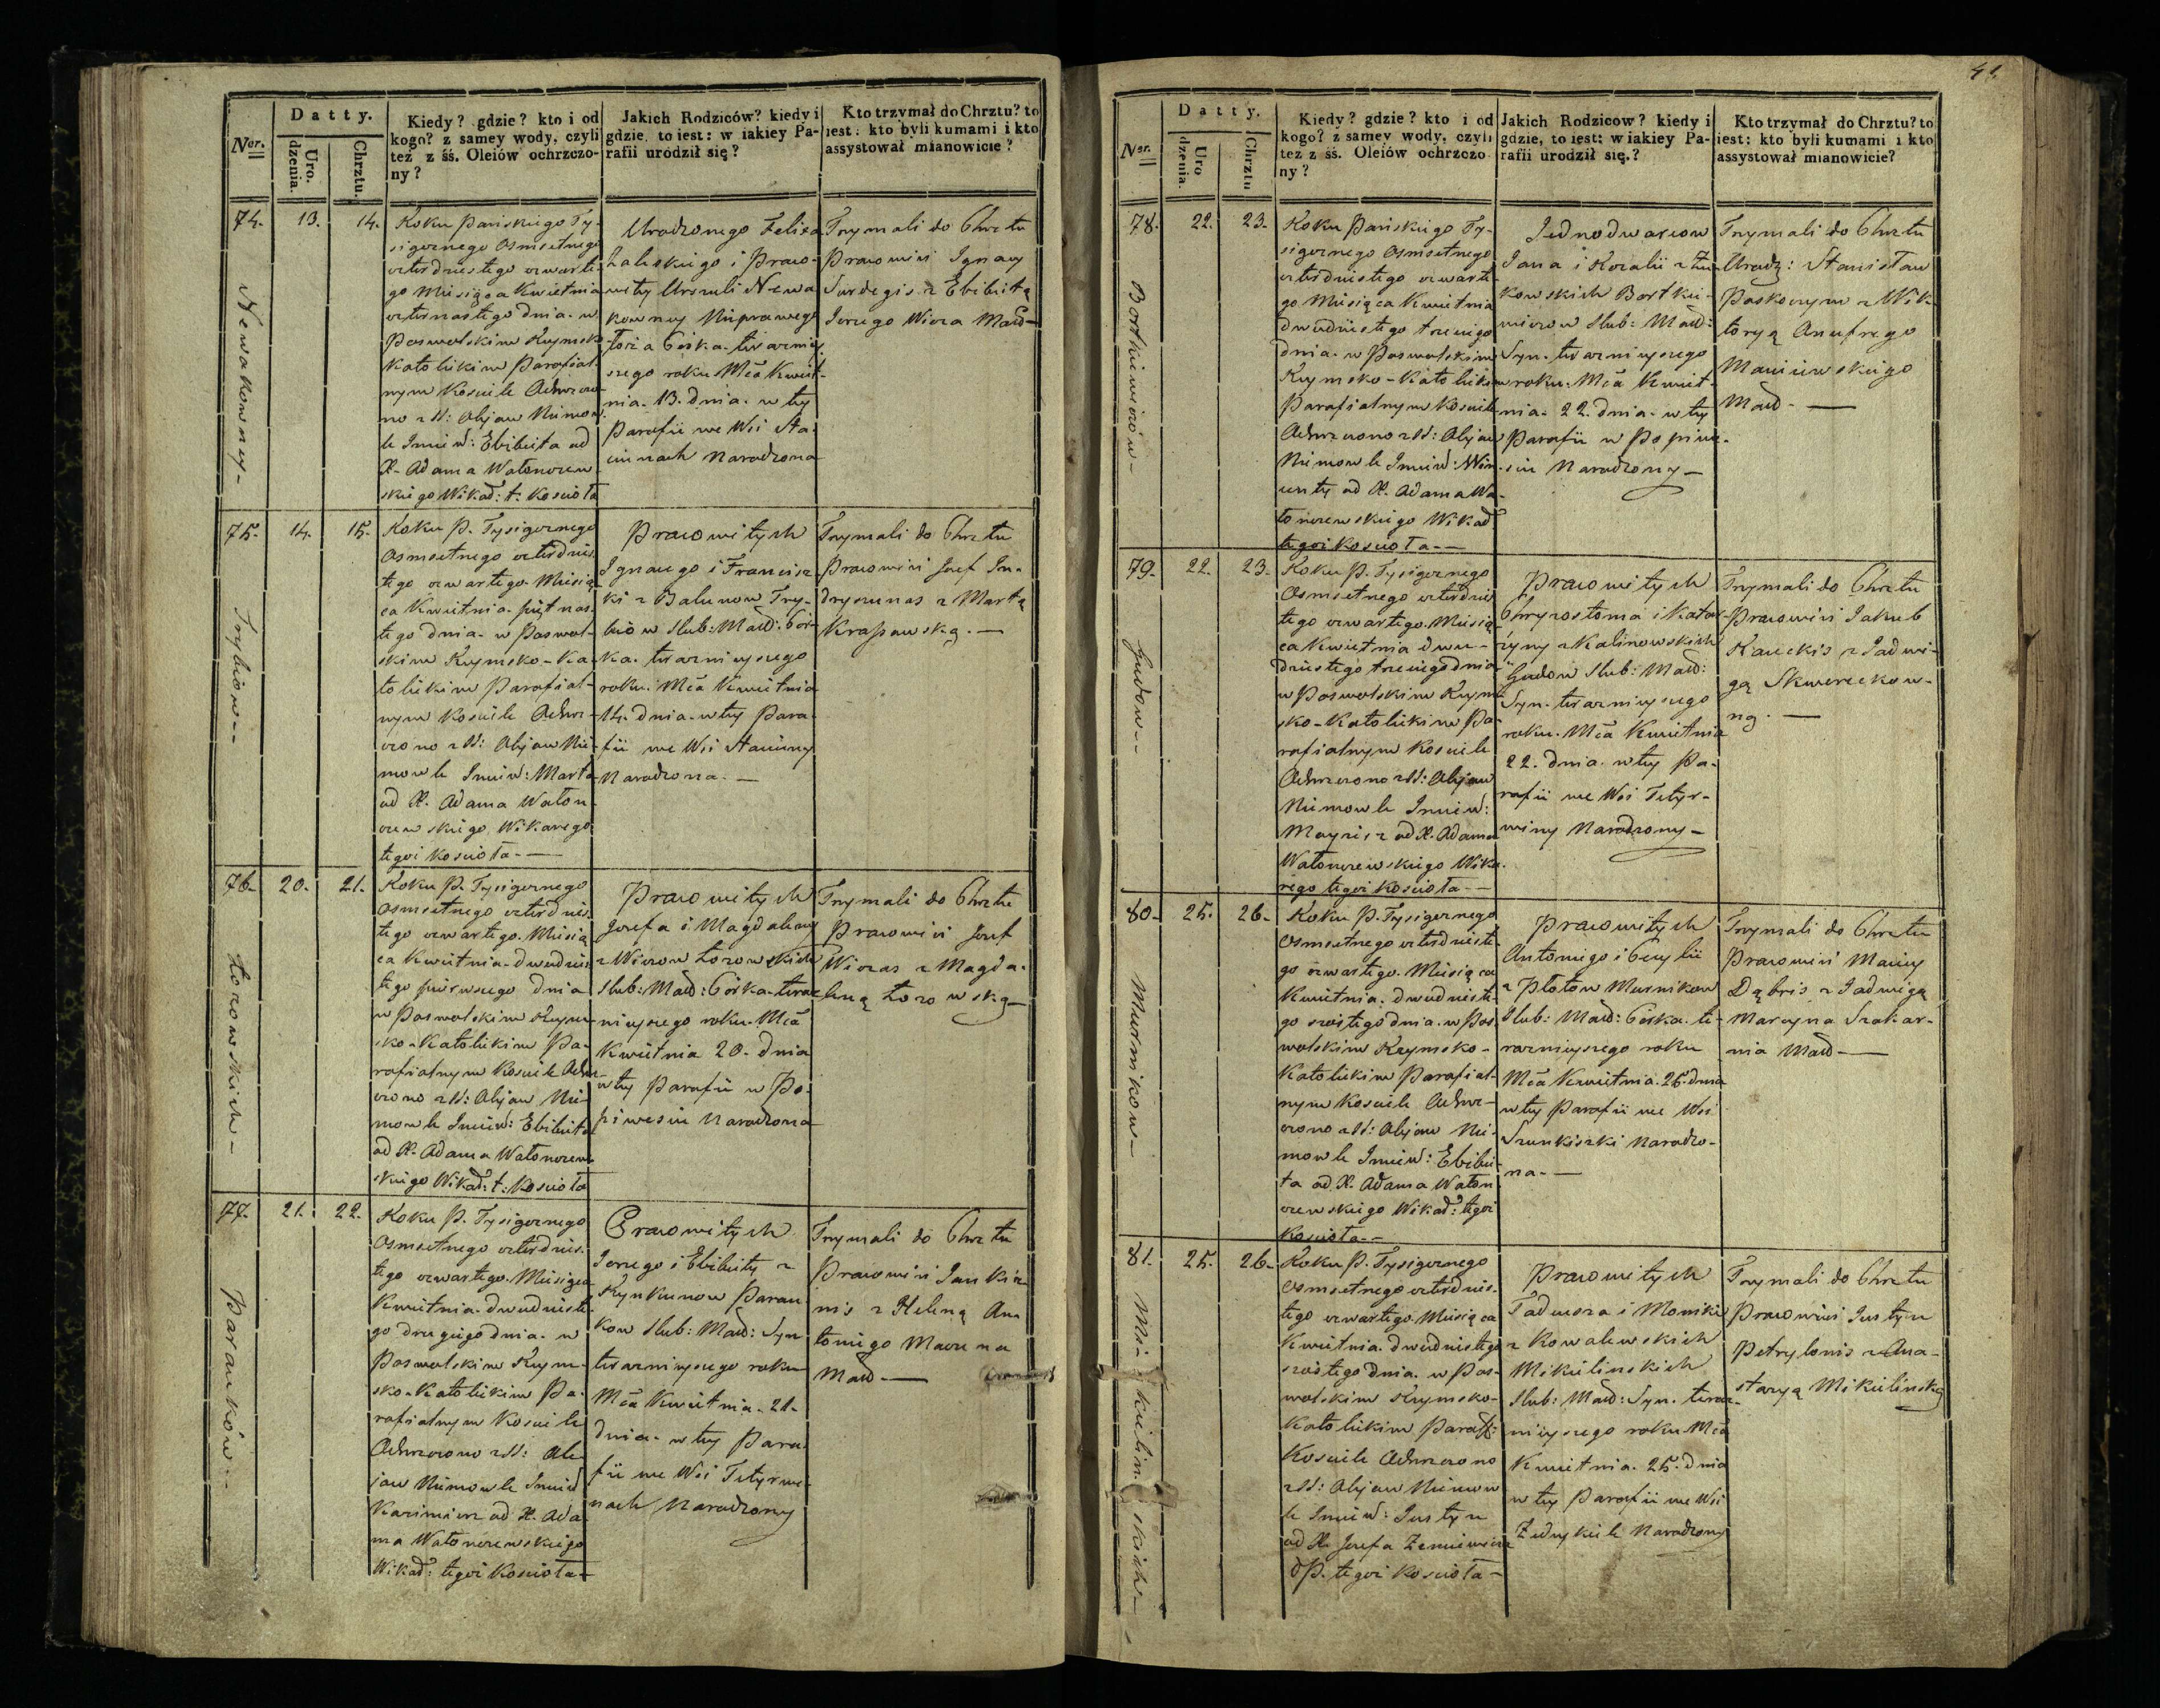 41.
Datty.
Nor.
Uro.
dzenia.
Chrztu.
Kiedy? gdzie? kto i od
kogo? z samey wody, czyli
też z śś. Oleiów ochrzczo-
ny?
Jakich Rodziców? kiedy i
gdzie, to iest: w iakiey Pa-
rafii urodził się?
Kto trzymał do Chrztu? to
iest: kto byli kumami i kto
assystował mianowicie?
74.
Newakowney-
13.
14.
Roku Pańskiego Ty-
siącznego Osmsetnego
czterdziestego czwarte-
go Miesiąca Kwietnia
czternastego dnia. w
Poswolskim Rzymsk
Katolickim Parafial-
nym Kosciele Ochrzczo-
no z SS: Olejow Niemow-
le Imieῆ: Elżbieta od
X. Adama Wałonczew-
skiego Wikaῆ: t: Kościoła
Urodzonego Felixa
Zaleskiego i Praco-
witey Urszuli Newa
kowney Nieprawego
łoża Córka. teraźniey-
szego roku Mca Kwiet-
nia. 13. dnia. w tey
Parafii we Wsi Sta-
ciunach Narodzona
Trzymali do Chrztu
Pracowici Ignacy
Surdegis z Elżbietą
Jerzego Wiera Małż-
75.
Trybiow--
14.
15.
Roku P. Tysiącznego
Osmsetnego czterdzies-
tego czwartego. Miesią-
ca Kwietnia. piętnas-
tego dnia. w Poswol-
skim Rzymsko-Ka-
tolickim Parafial-
nym Kosciele Ochrz-
czono z SS: Olejow Nie-
mowle Imieῆ: Marta
od X. Adama Wałon-
czewskiego Wikarego
tegoż Kościoła.-
Pracowitych
Ignacego i Francisz-
ki z Balunow Try-
biów Slub: Małż: Cór-
ka. teraźnieyszego
roku. Mca Kwietnia
14. dnia. w tey Para-
fii we Wsi Staciuny
Narodzona.-
Trzymali do Chrztu
Pracowici Józef In-
dryszunas z Martą
Krassawską.-
76.
Łozowskich-
20.
21.
Roku P. Tysiącznego
Osmsetnego czterdzies-
tego czwartego. Miesią-
ca Kwietnia. dwudzies-
tego pierwszego dnia
w Poswolskim Rzym-
sko-Katolickim Pa-
rafialnym Kosciele Ochrz-
czono z SS: Olejow Nie-
mowle Imieῆ: Elżbieta
od X. Adama Wałonczew-
skiego Wikaῆ: t: Kościoła
Pracowitych
Józefa i Magdaleny
z Wierow Łozowskich
Slub: Małż: Córka. teraź-
nieyszego roku. Mca
Kwietnia 20. dnia
w tey Parafii w Po-
piwesiu Narodzona
Trzymali do Chrztu
Pracowici Józef
Wieras z Magda-
leną Łozowską-
77.
Parauków--
21.
22.
Roku P. Tysiącznego
Osmsetnego czterdzies-
tego czwartego. Miesiąca
Kwietnia. dwudzieste-
go drugiego dnia. w
Poswolskim Rzym-
sko-Katolickim Pa-
rafialnym Kosciele
Ochrzczono z SS: Ole-
jow Niemowle Imieῆ
Kazimierz od X. Ada-
ma Wałonczewskiego
Wikaῆ: tegoż Kościoła-
Pracowitych
Jerzego i Elżbiety z
Rynkunow Parau-
kow Slub: Małż: Syn
teraźnieyszego roku
Mca Kwietnia. 21.
dnia. w tey Para-
fii we Wsi Tetyrwi-
nach Narodzony
Trzymali do Chrztu
Pracowici Jankie-
nis z Heleną An-
toniego
Małż-
Datty.
Nor.
Uro
dzenia.
Chrztu
Kiedy? gdzie? kto i od
kogo? z samey wody, czyli
też z śś. Oleiów ochrzczo
ny?
Jakich Rodzicow? kiedy i
gdzie, to iest: w iakiey Pa-
rafii urodził się.?
Kto trzymał do Chrztu? to
iest: kto byli kumami i kto
assystował mianowicie?
78.
Bortkiewiczów-
22.
23.
Roku Pańskiego Ty-
siącznego Osmsetnego
czterdziestego czwarte-
go Miesiąca Kwietnia
dwudziestego trzeciego
dnia. w Poswolskim
Rzymsko-Katolickim
Parafialnym Kosciele
Ochrzczono z SS: Olejow
Niemowle Imieῆ: Win-
centy od X. Adama Wa-
łonczewskiego Wikaῆ
tegoż Kościoła.-
Jednodworcow
Jana i Rozalii z Żu-
kowskich Bortkie-
wiczow Slub: Małż:
Syn. teraźnieyszego
roku. Mca Kwiet-
nia. 22. dnia. w tey
Parafii w Popiwe-
siu Narodzony-
Trzymali do Chrztu
Urodz: Stanisław
Paskoczym z Wik-
toryą Anufrego
Maciiewskiego
Małż.-
79.
Gudow--
22.
23.
Roku P. Tysiącznego
Osmsetnego czterdzies
tego czwartego. Miesią-
ca Kwietnia dwu-
dziestego trzeciego dnia
w Poswolskim Rzym-
sko-Katolickim Pa-
rafialnym Kosciele
Ochrzczono z SS: Olejow
Niemowle Imieῆ:
Maycisz od X. Adama
Wałonczewskiego Wika-
rego tegoż Kościoła--
Pracowitych
Chryzostoma i Kata-
rzyny z Kalinowskich
Gudow Slub: Małż:
Syn. teraźnieyszego
roku. Mca Kwietnia
22. dnia. w tey Pa-
rafii we Wsi Tetyr-
winy Narodzony-
Trzymali do Chrztu
Pracowici Jakub
Kauckis z Jadwi-
gą Skwereckow-
ną.-
80.
Murnikow-
25.
26.
Roku P. Tysiącznego
Osmsetnego czterdzieste-
go czwartego. Miesiąca
Kwietnia. dwudzieste-
go szóstego dnia. w Pos-
wolskim Rzymsko-
Katolickim Parafial-
nym Kosciele Ochrz-
czono z SS: Olejow Nie-
mowle Imieῆ: Elżbie-
ta od X. Adama Wałon-
czewskiego Wikaῆ: tegoż
Kościoła--
Pracowitych
Antoniego i Cecylii
z Płotow Murnikow
Slub: Małż: Córka. te-
raźnieyszego roku
Mca Kwietnia. 25. dnia
w tey Parafii we Wsi
Szunkiszki Narodzo-
na.-
Trzymali do Chrztu
Pracowici Maciey
Dąbris z Jadwigą
Marcyna Szakar-
nia Małż-
81.
Mikulinskich-
25.
26.
Roku P. Tysiącznego
Osmsetnego czterdzies-
tego czwartego. Miesiąca
Kwietnia. dwudziestego
szóstego dnia. w Pos-
wolskim Rzymsko-
Katolickim Paraf:
Kosciele Ochrzczono
z SS: Olejow Niemow
le Imieῆ: Justyn
od X. Józefa
tegoż Kościoła-
Pracowitych
Tadeusza i Moniki
z Kowalewskich
Mikulinskich
Slub: Małż: Syn. teraź-
nieyszego roku. Mca
Kwietnia. 25. dnia
w tey Parafii we Wsi
Narodzony
Trzymali do Chrztu
Pracowici Justyn
Petrylonis z Ana-
stazyą Mikulinską